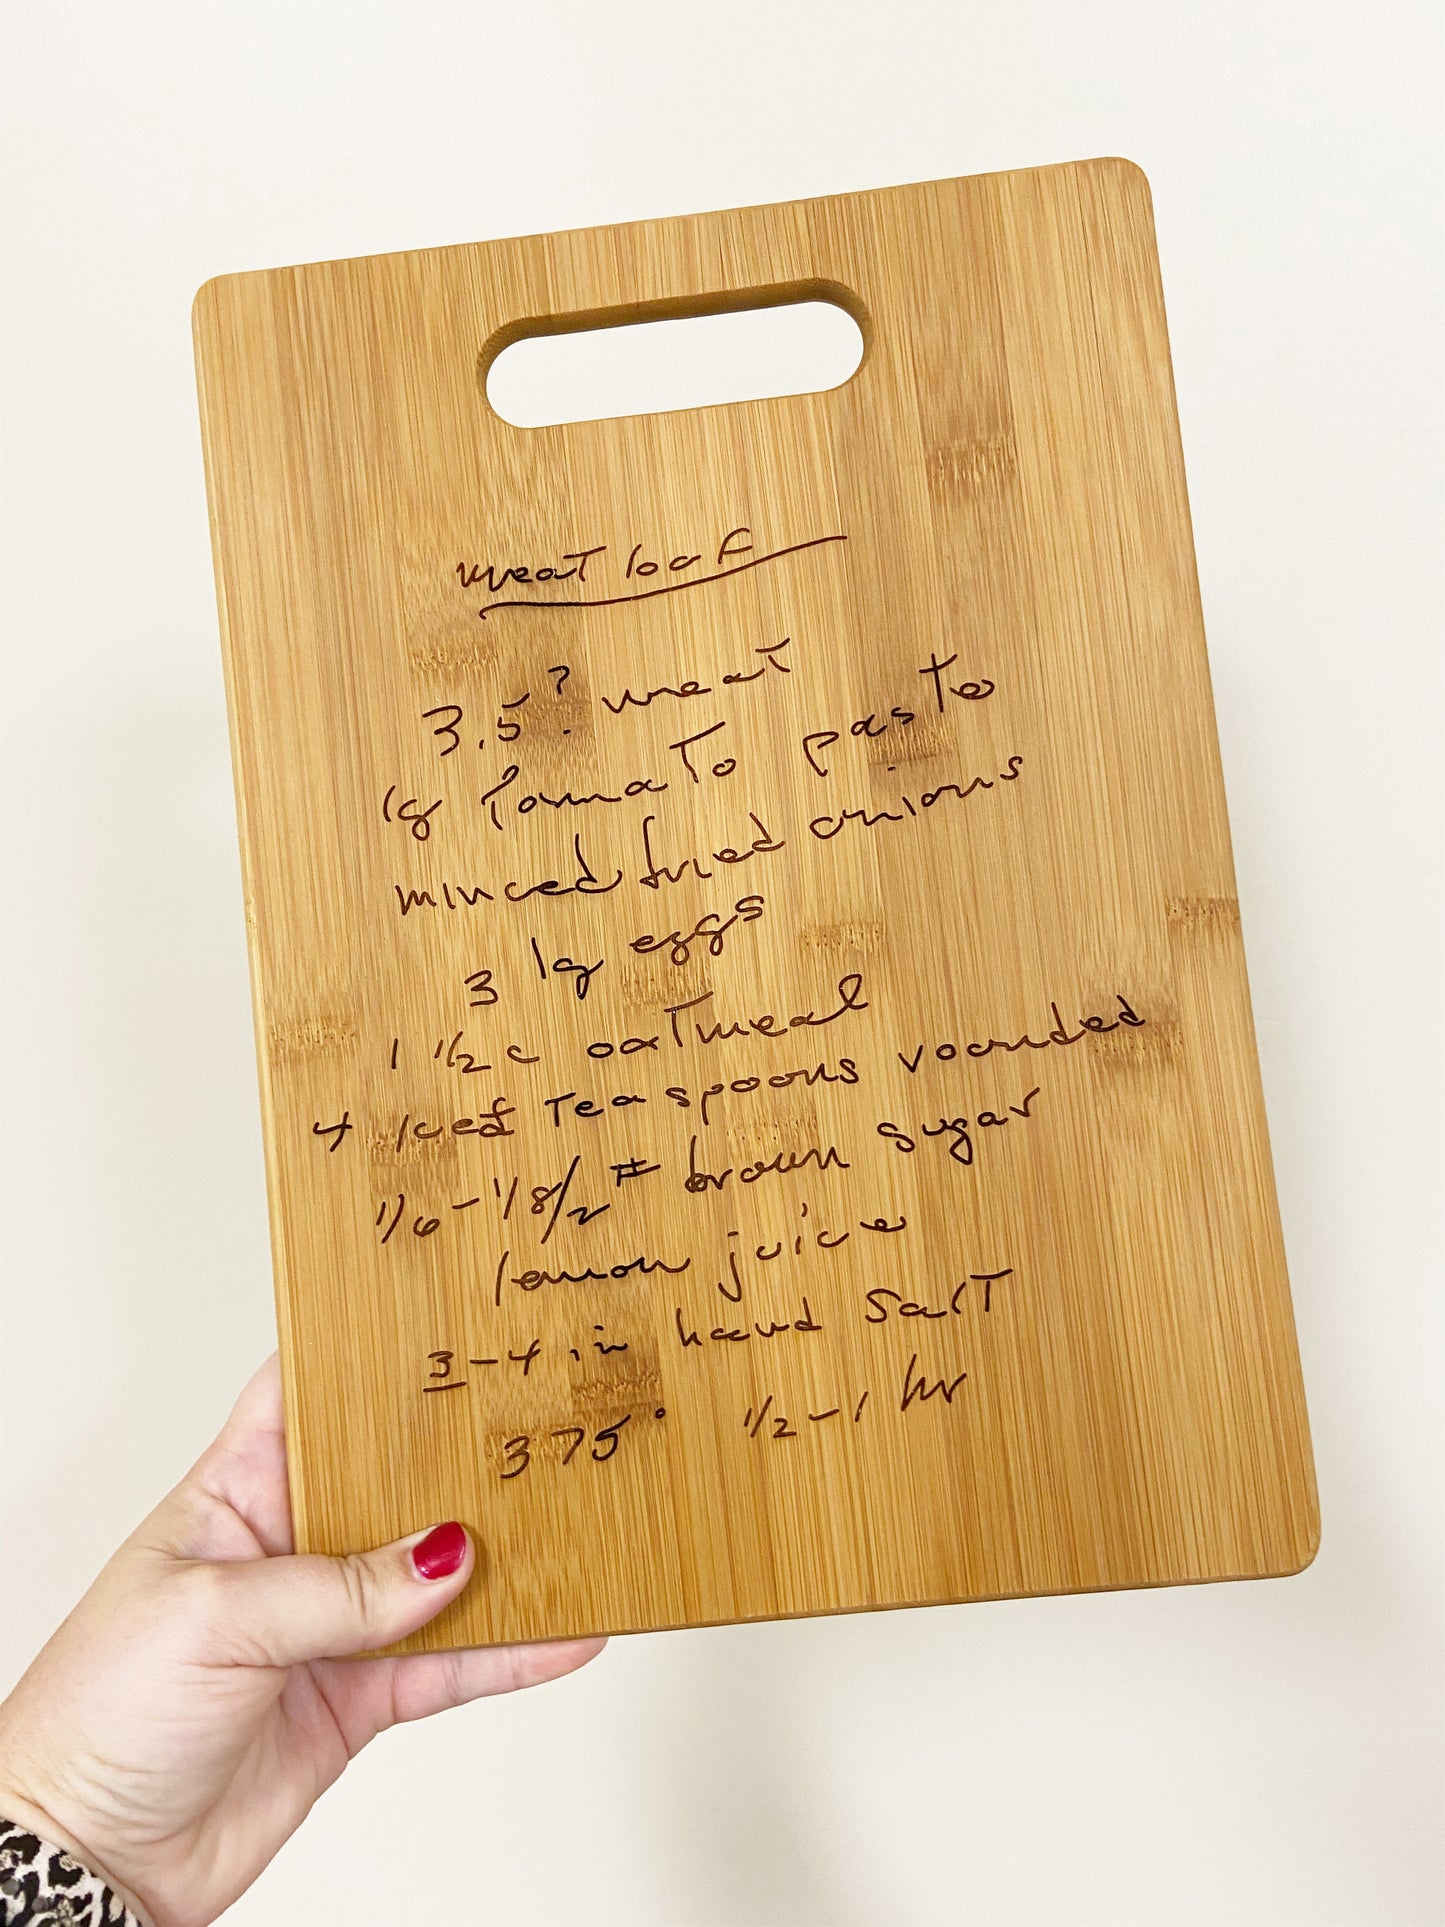 meat loaf
3.5? meat
lg tomato paste
minced fried onions
3 lg eggs
1 1/2 c oatmeal
4 iced teaspoons rounded
1/6 - 1/8/2 # brown sugar
lemon juice
3-4 in hand salt
375° 1/2 - 1 hr